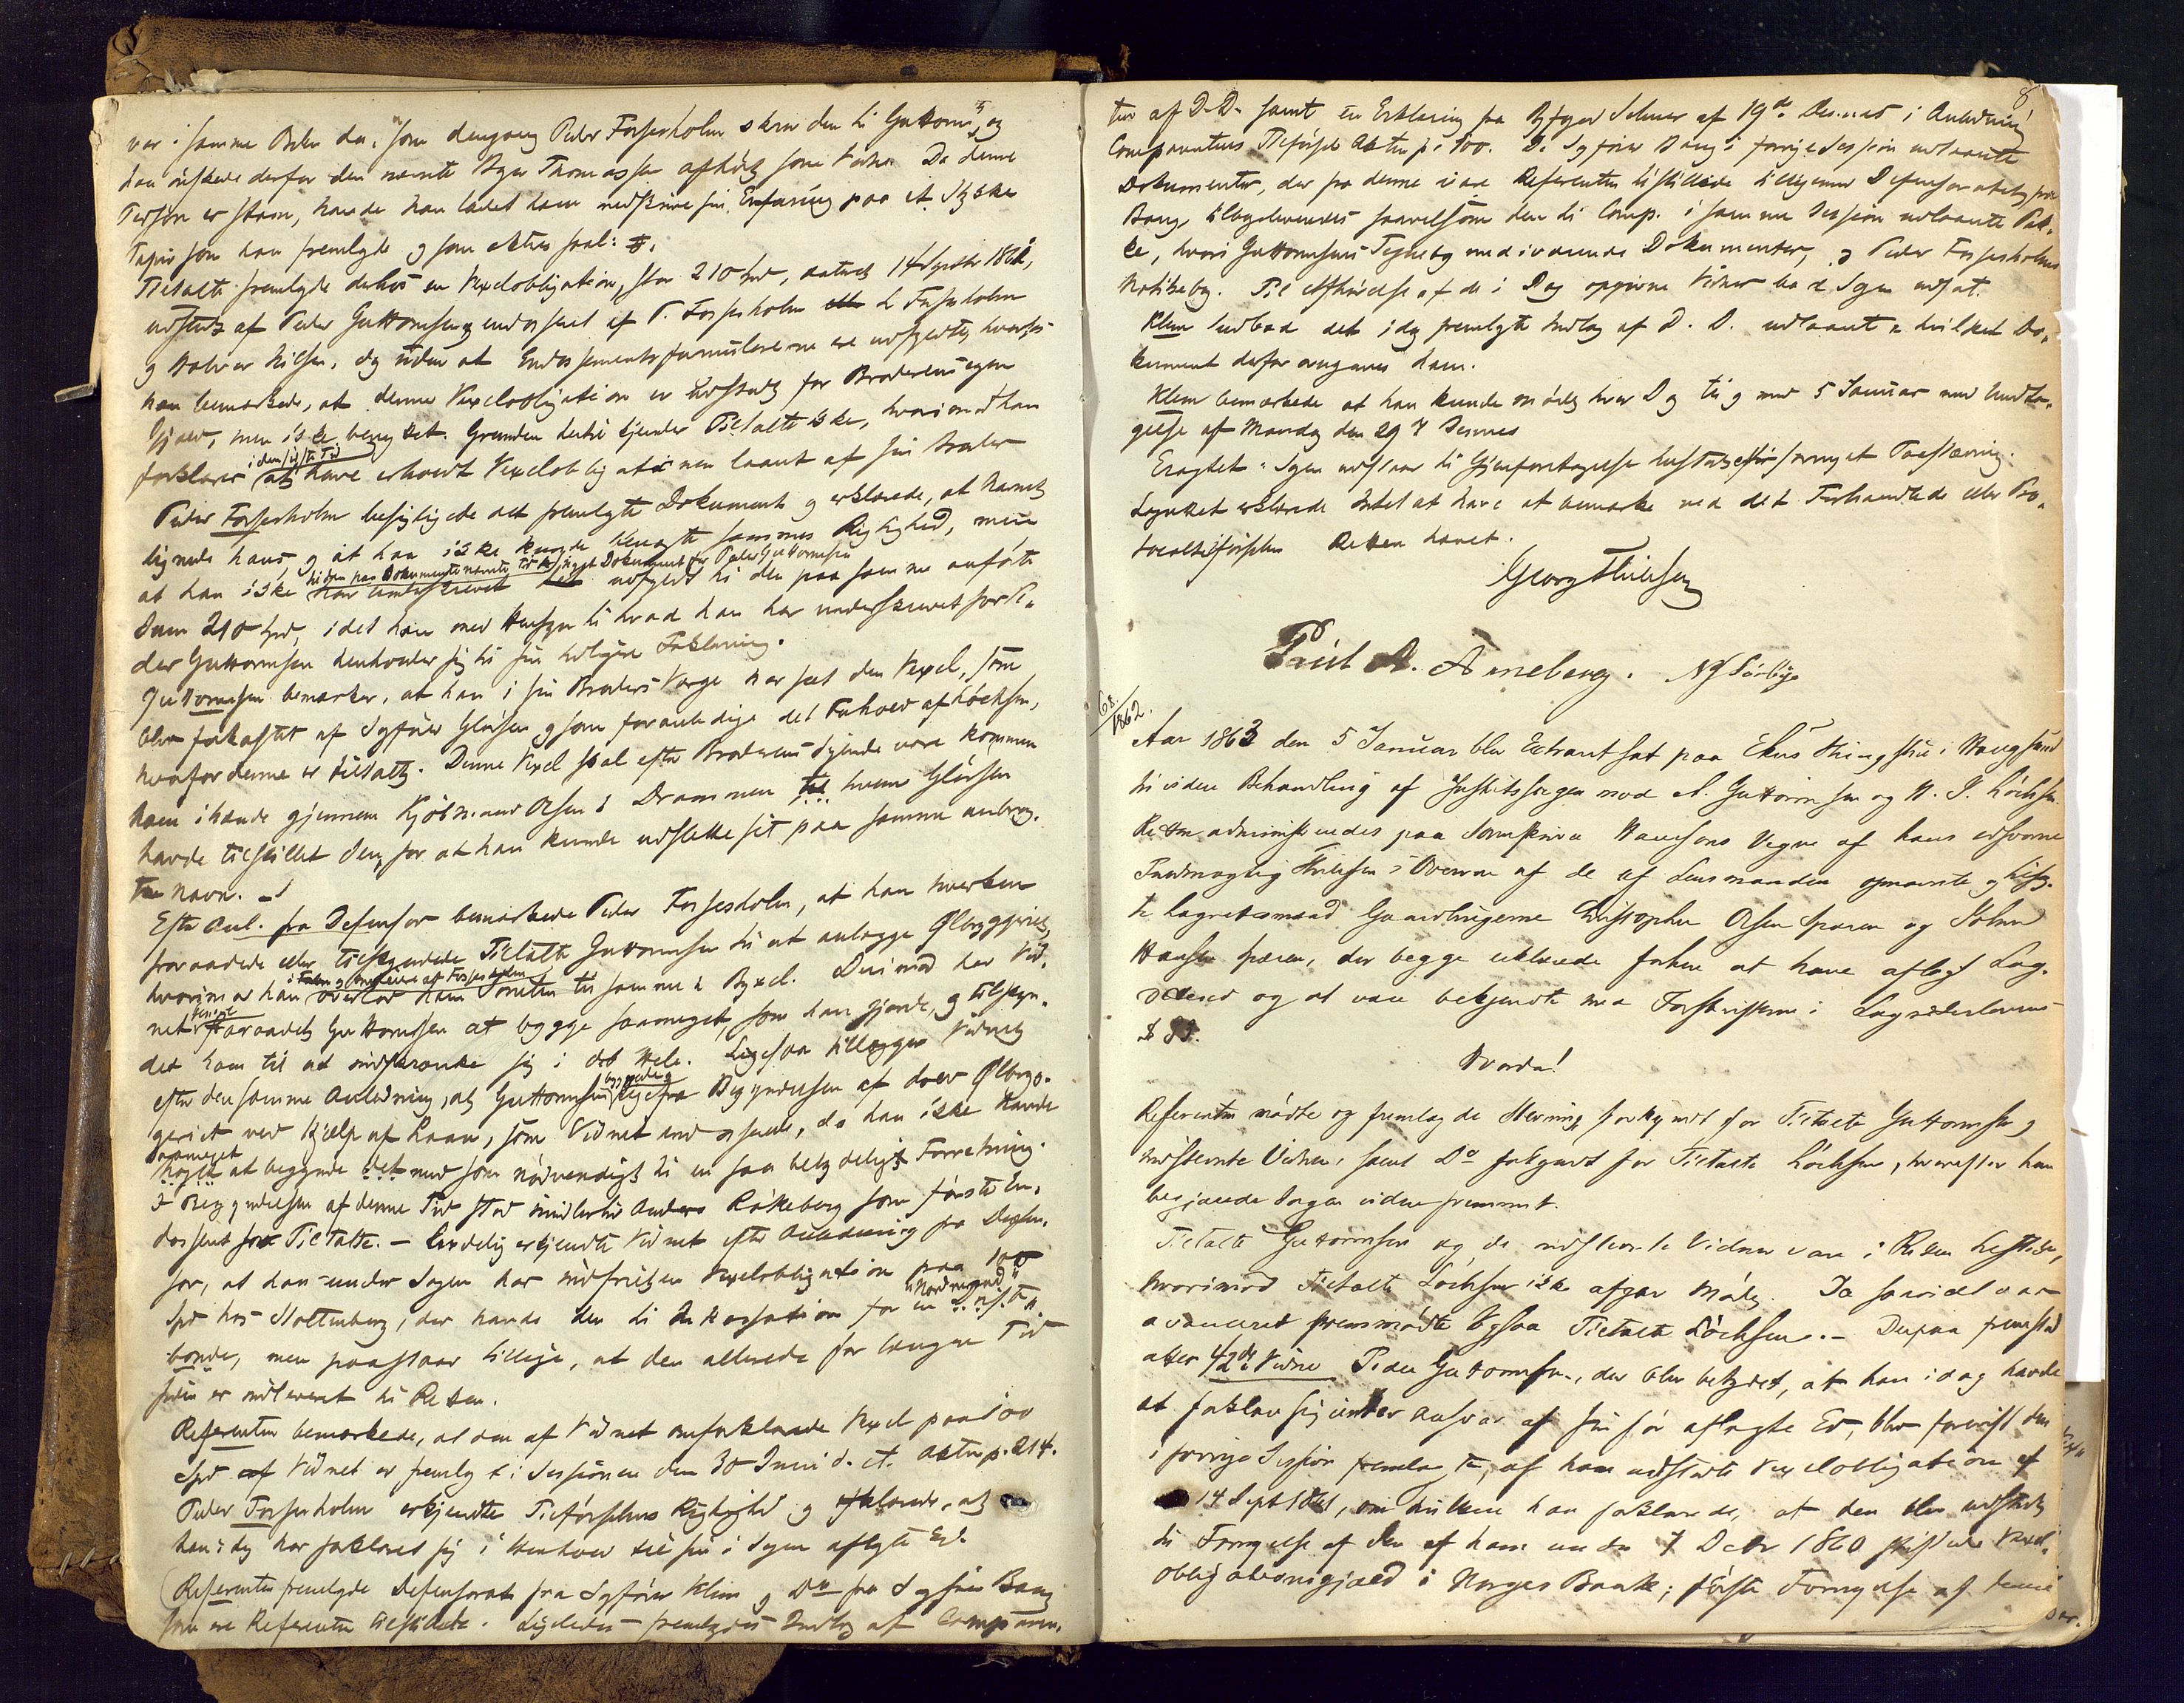 var i samme Orden da "som dengang Peder Forsesholm skrev den til Guttorms", og
han ønskede derfor den nævnte Byer Thomassen afhørt som Vidne. Da denne
Person er stum, havde han ladet ham nedskrive sin Erfaring paa et Stykke
Papir som han fremlagde og som
Tiltalte fremlagde derhos en Vexelobligation, stor 210 Spd, dateret 14 Septbr 1861,
udstedt af Peder Guttormsen og endosseret af P. Forsesholm
og Halvor Nilsen, dog uden at Endossementsformularerne ere udfyldte, hvorhos
han bemærkede, at denne Vexelobligation er udstedt for Broderens egen
Gjæld, men ikke benyttet. Grunden hertil kjender Tiltalte ikke, hvorimod han
forklarer i den sidste Tid at have erholdt Vexelobligationen laant af sin Broder
Peder Forsesholm besigtigede det fremlagte Dokument og erklærede, at Navnet
lignede hans, og at han ikke kunde benægte sammes Rigtighed, men
at han ikke har underskrevet udfyldt til den paa samme anførte
Sum 210 Spd, idet han med Hensyn til hvad han har underskrevet for Pe-
der Guttormsen henholder sig til sin tidligere Forklaring.
Guttormsen bemærker, at han i sin Broders Værge har seet den Vexel, som
blev forkastet af Sagfører Glørsen og som foranledige det Forhold af Løchsen,
hvorfor denne er tiltalt. Denne Vexel skal efter Broderens Sigende være kommen
ham ihænde gjennem Kjøbmand Olsen i Drammen til hvem Glørsen
havde tilstillet den, for at han kunde udslette sit paa samme anbrag-
te Navn. –
Efter Anl. fra Defensor bemærkede Peder Forsesholm, at han hverken
fraraadede eller tilskyndede Tiltalte Guttormsen til at anlægge Ølbryggeriet,
hvorimod han overlod ham Tomten til samme i Byxel. Derimod har Vid-
net fraraadet Guttormsen at bygge saameget, som han gjorde, og tilskyn-
det ham til at indskrænke sig i det Hele. Ligesaa tillægger Vidnet
efter den samme Anledning, at Guttormsen byggede lige fra Begyndelsen af drev Ølbryg-
geriet ved Hjælp af Laan, som Vidnet endosserede, da han ikke havde
saameget at begynde det med som nødvendigt til en saa betydelig Forretning.
I Begyndelsen af denne Tid stod imidlertid Anders Røkeberg som første En-
dossent for Tiltalte. – Endelig erkjendte Vidnet efter Anledning fra Defen-
sor, at han under Sagen har indfriet en Vexelobligation paa 100
Spd hos Stoltenberg, der havde den til Inkassation for en "Nordmand"
bonde, men paastaar tillige, at den allerede for længere Tid
siden er indleveret til Retten.
Referenten bemærkede, at den af Vidnet omforklarede Vexel paa 100
Spd af Vidnet er fremlagt i Sessionen den 30 Juni d. A. Aktens p. 214.
Peder Forsesholm erkjendte Tilførselens Rigtighed og erklærede, at
han idag har forklaret sig i Henhold til sin i Sagen aflagte Ed.
Referenten fremlagde Defensorat fra Sagfører Klem og Do fra Sagfører Bang
som ere Referenten tilstillede. Ligeledes fremlagdes Indlæg af Comparen-
8
ten af D.D. samt en Erklæring fra Byfoged Selmer af 19de Decbr i Anledning
Comparentens Tilførsel Aktens p. 500. De Sagfører Bang i forrige Session udlaante
Dokumenter, der fra denne vare Referenten tilstillede tilligemed Defensoratet fra
Bang, tilbageleveredes saavelsom den til Comp. i samme Session udlaante Pak-
ke, hvori Guttormsens Tegnebog med iværende Dokumenter, og Peder Forsesholms
Notitsebog. Til Afhørelse af de i Dag opgivne Vidner bad Sagen udsat.
Klem udbad det idag fremlagte Indlæg af D.D. udlaant, hvilket Do-
kument derfor overgaves ham.
Klem bemærkede at han kunde møde hver Dag til og med 5 Januar med Undta-
gelse af Mandag den 29 Dennes
Eragtet: Sagen udstaar til Gjenforetagelse hersteds efter fornyet Paastævning.
Lagrettet erklærede Intet at have at bemærke ved det Forhandlede eller Pro-
tocoltilførselen. Retten hævet.
Georg Thulesen
Paul A. Anneberg. N J Sørbye
68/1862.
Aar 1863 den 5 Januar blev Extraret sat paa Ekers Thingstue i Hougsund
til videre Behandling af Justitssagen mod A. Guttormsen og N. J. Løchsen.
Retten administreredes paa Sorenskriver Hansons Vegne af hans edsvorne
Fuldmægtig Thulesen i Overvær af de af Lensmanden opnævnte og tilsag-
te Lagrettesmænd Gaardbrugerne Christopher Olsen Sparen og Johan
Hansen Sparen, der begge erklærede forhen at have aflagt Lag-
rettesed og at være bekjendte med Forskrifterne i Lagrettelovens
§ 83.
Hvorda!
Referenten mødte og fremlagde Stevning, forkyndt for Tiltalte Guttormsen og
indstevnte Vidner, samt Do forkyndt for Tiltalte Løchsen, hvorefter han
begjærede Sagen videre fremmet.
Tiltalte Guttormsen og de indstevnte Vidner vare i Retten tilstede,
hvorimod Tiltalte Løchsen ikke afgav Møde. Da saavidt var
avanceret fremmødte ogsaa Tiltalte Løchsen. – Derpaa fremstod
atter 42de Vidne Peder Guttormsen, der blev betydet, at han idag havde
at forklare sig under Ansvar af sin før aflagte Ed, blev foreviist den
i forrige Session fremlagte, af ham udstedte Vexelobligation af
14 Sept 1861, om hvilken han forklarede, at den blev udstedt
til Fornyelse af den af ham under 7 Decbr 1860 stiftede Vexel-
obligationsgjæld i Norges Bank; første Fornyelse af denne